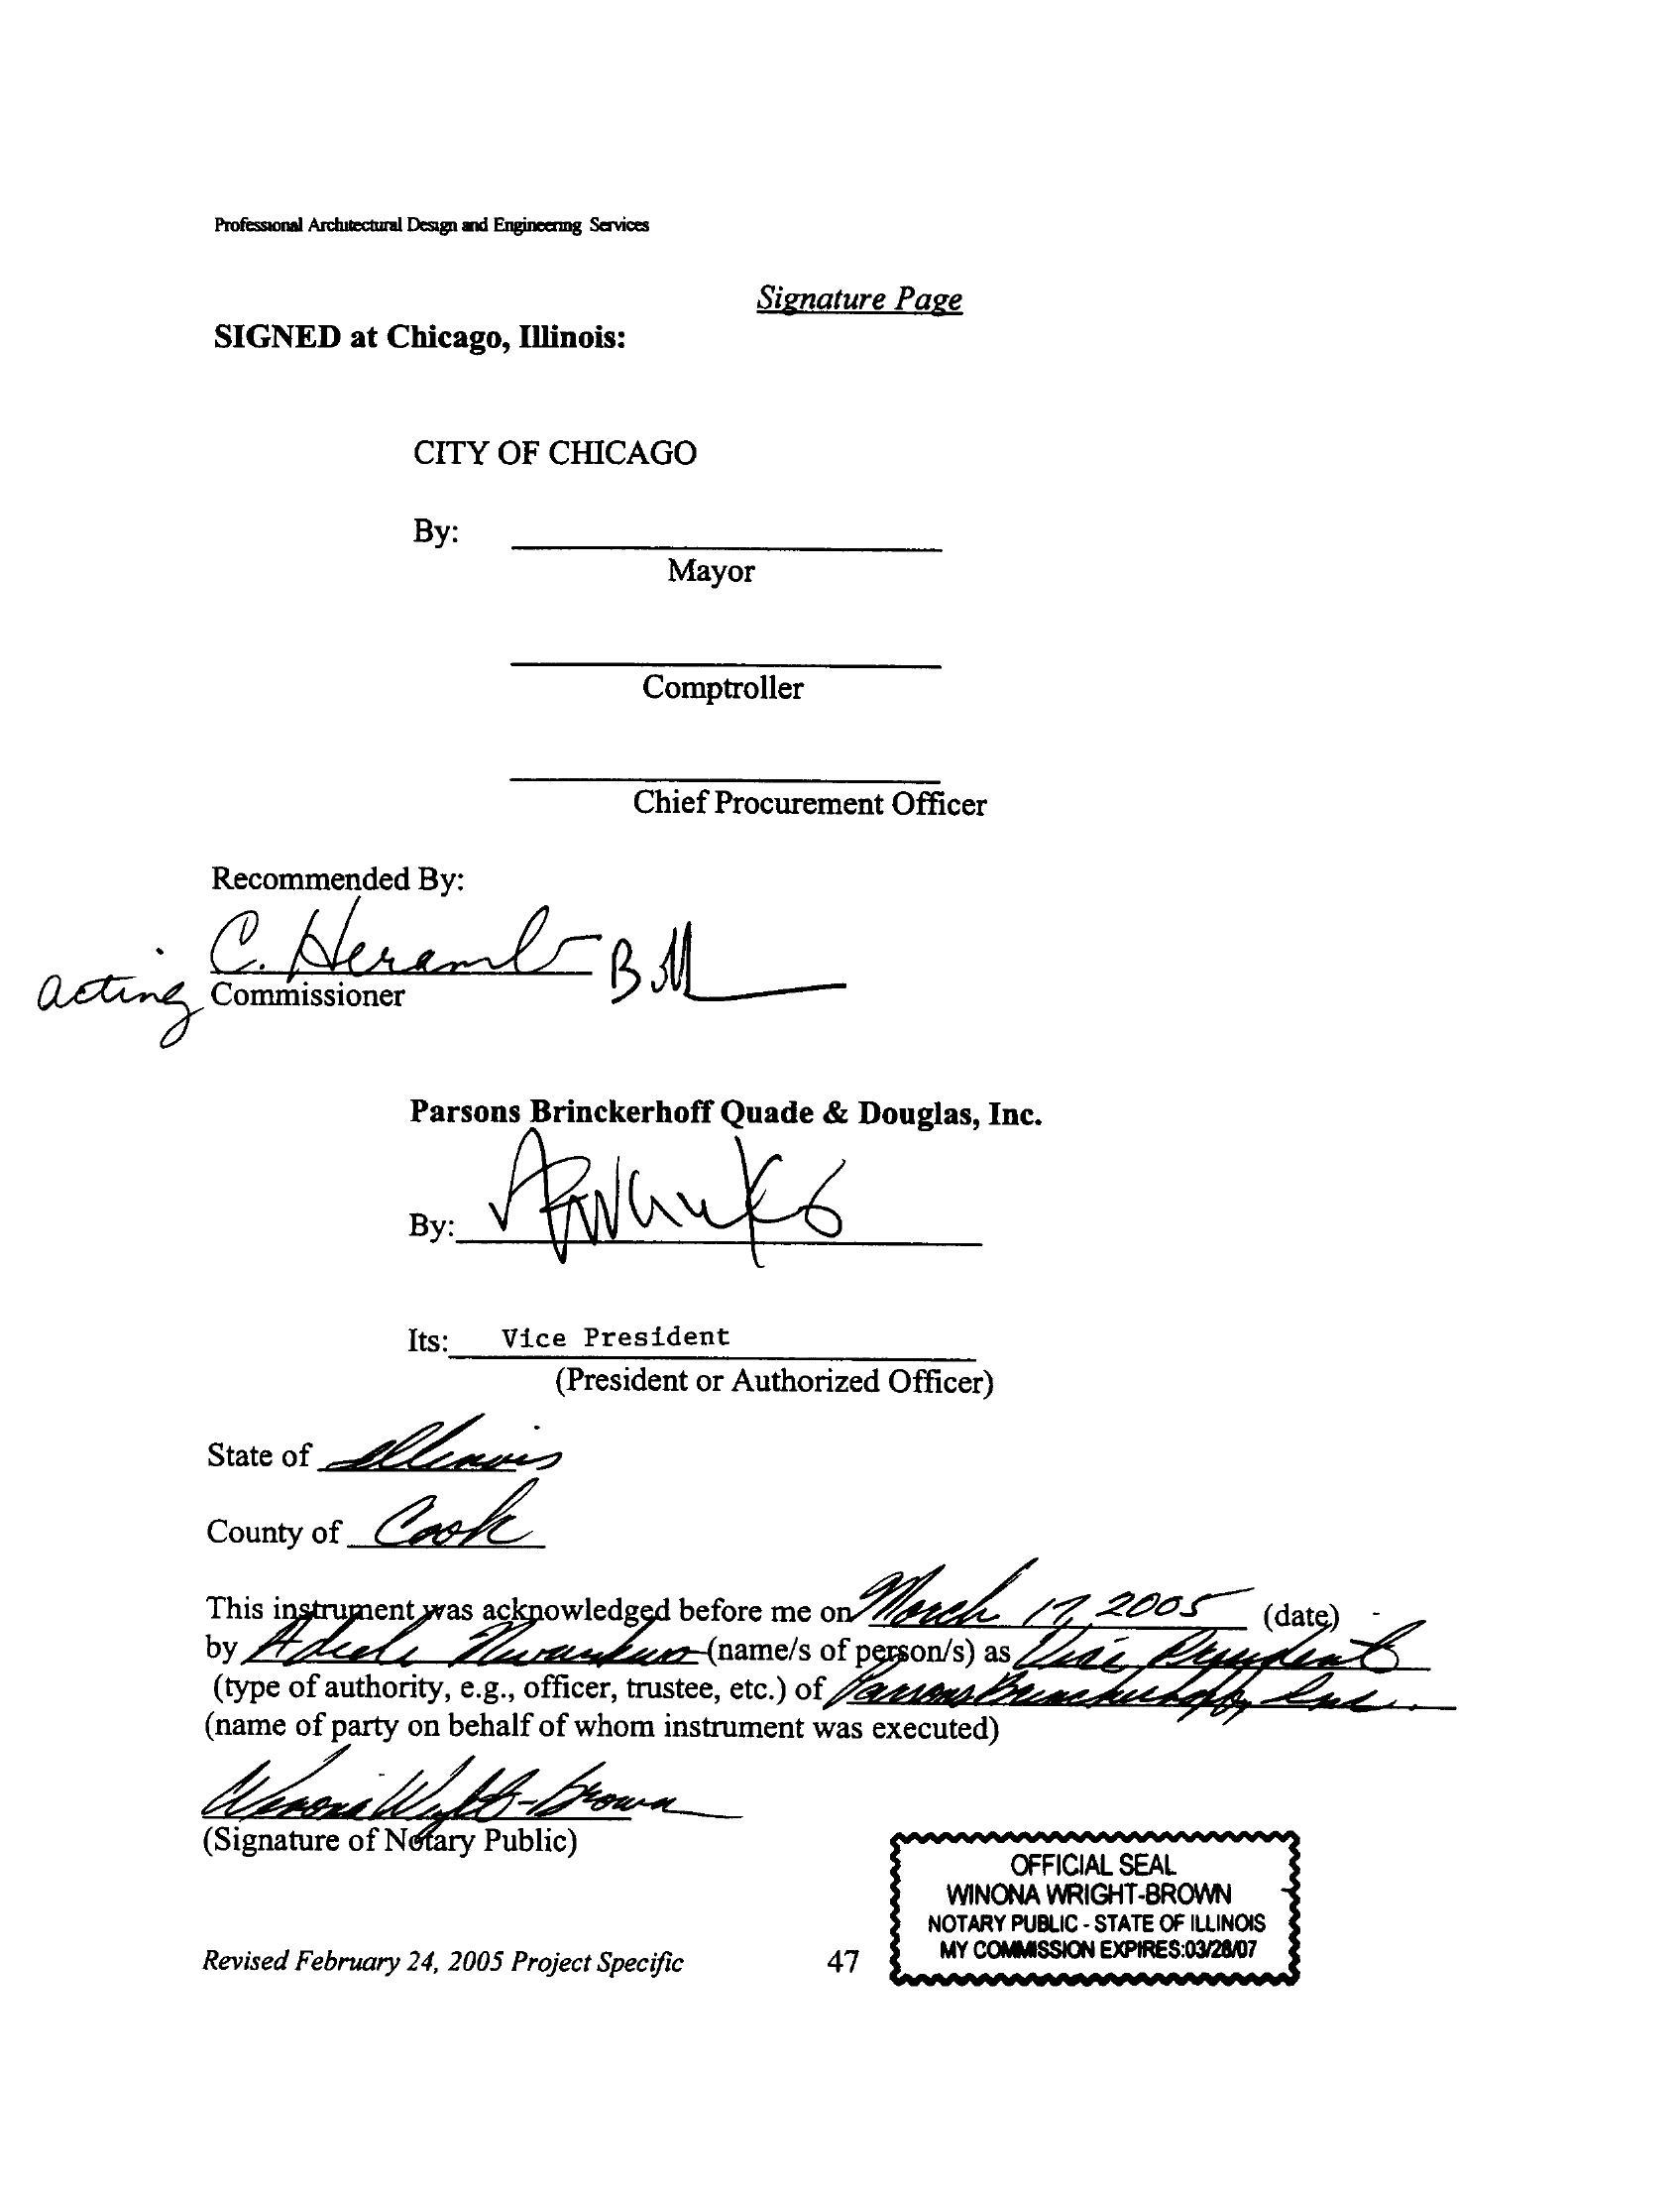 Professional Architectural Design and Engineering Services
Signature Page
SIGNED at Chicago, Illinois:
CITY OF CHICAGO
By:
Mayor
Comptroller
Chief Procurement Officer
Recommended By:
C. Heramb
acting Commissioner
Parsons Brinckerhoff Quade & Douglas, Inc.
By:
Its: Vice President
(President or Authorized Officer)
State of Illinois
County of Cook
This instrument was acknowledged before me on March 17, 2005 (date)
by Adiele Nwankwo (name/s of person/s) as Vice President
(type of authority, e.g., officer, trustee, etc.) of Parsons Brinckerhoff, Inc.
(name of party on behalf of whom instrument was executed)
Winona Wright-Brown
(Signature of Notary Public)
OFFICIAL SEAL
WINONA WRIGHT-BROWN
NOTARY PUBLIC - STATE OF ILLINOIS
MY COMMISSION EXPIRES:03/28/07
Revised February 24, 2005 Project Specific 47